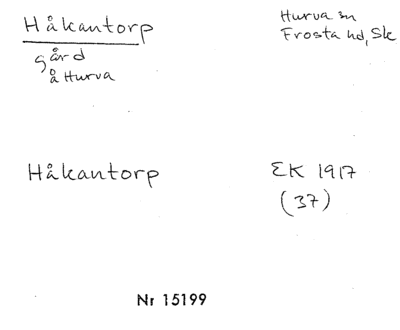 Håkantorp
gård
å Hurva
Hurva sn
Frosta hd, Sk
Håkantorp
EK 1917
(37)
Nr 15199